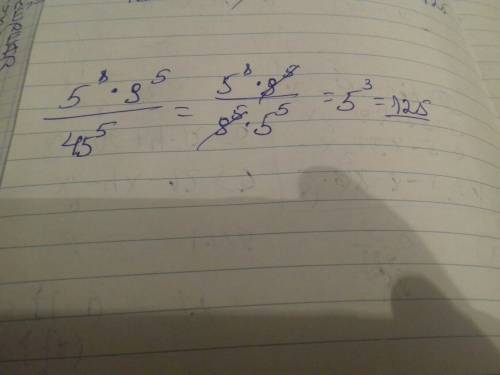 5^8 · 9^5 / 45^5 = 5^8 · 9^5 / 9^5 · 5^5 = 5^3 = 125